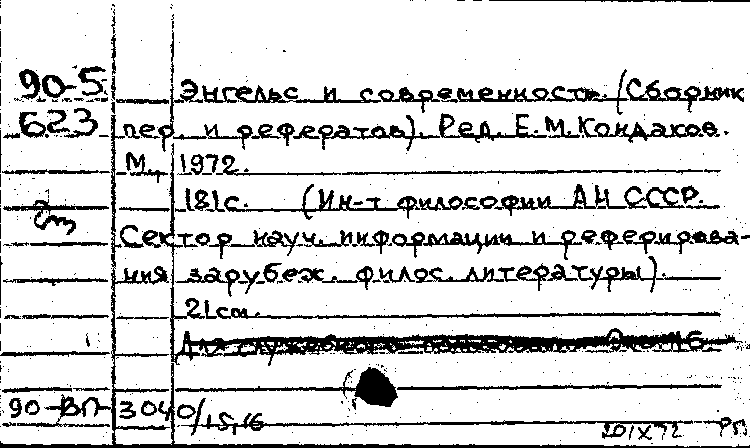 90-5 Энгельс и современность. (Сборник
Б23 пер. и рефератов). Ред. Е.М.Кондаков.
М., 1972.
181с. (Ин-т философии АН СССР.
Сектор науч. информации и реферирова-
ния зарубеж. филос. литературы).
21см.
Для служебного
90-ВП-3040/15,16
20/X 72